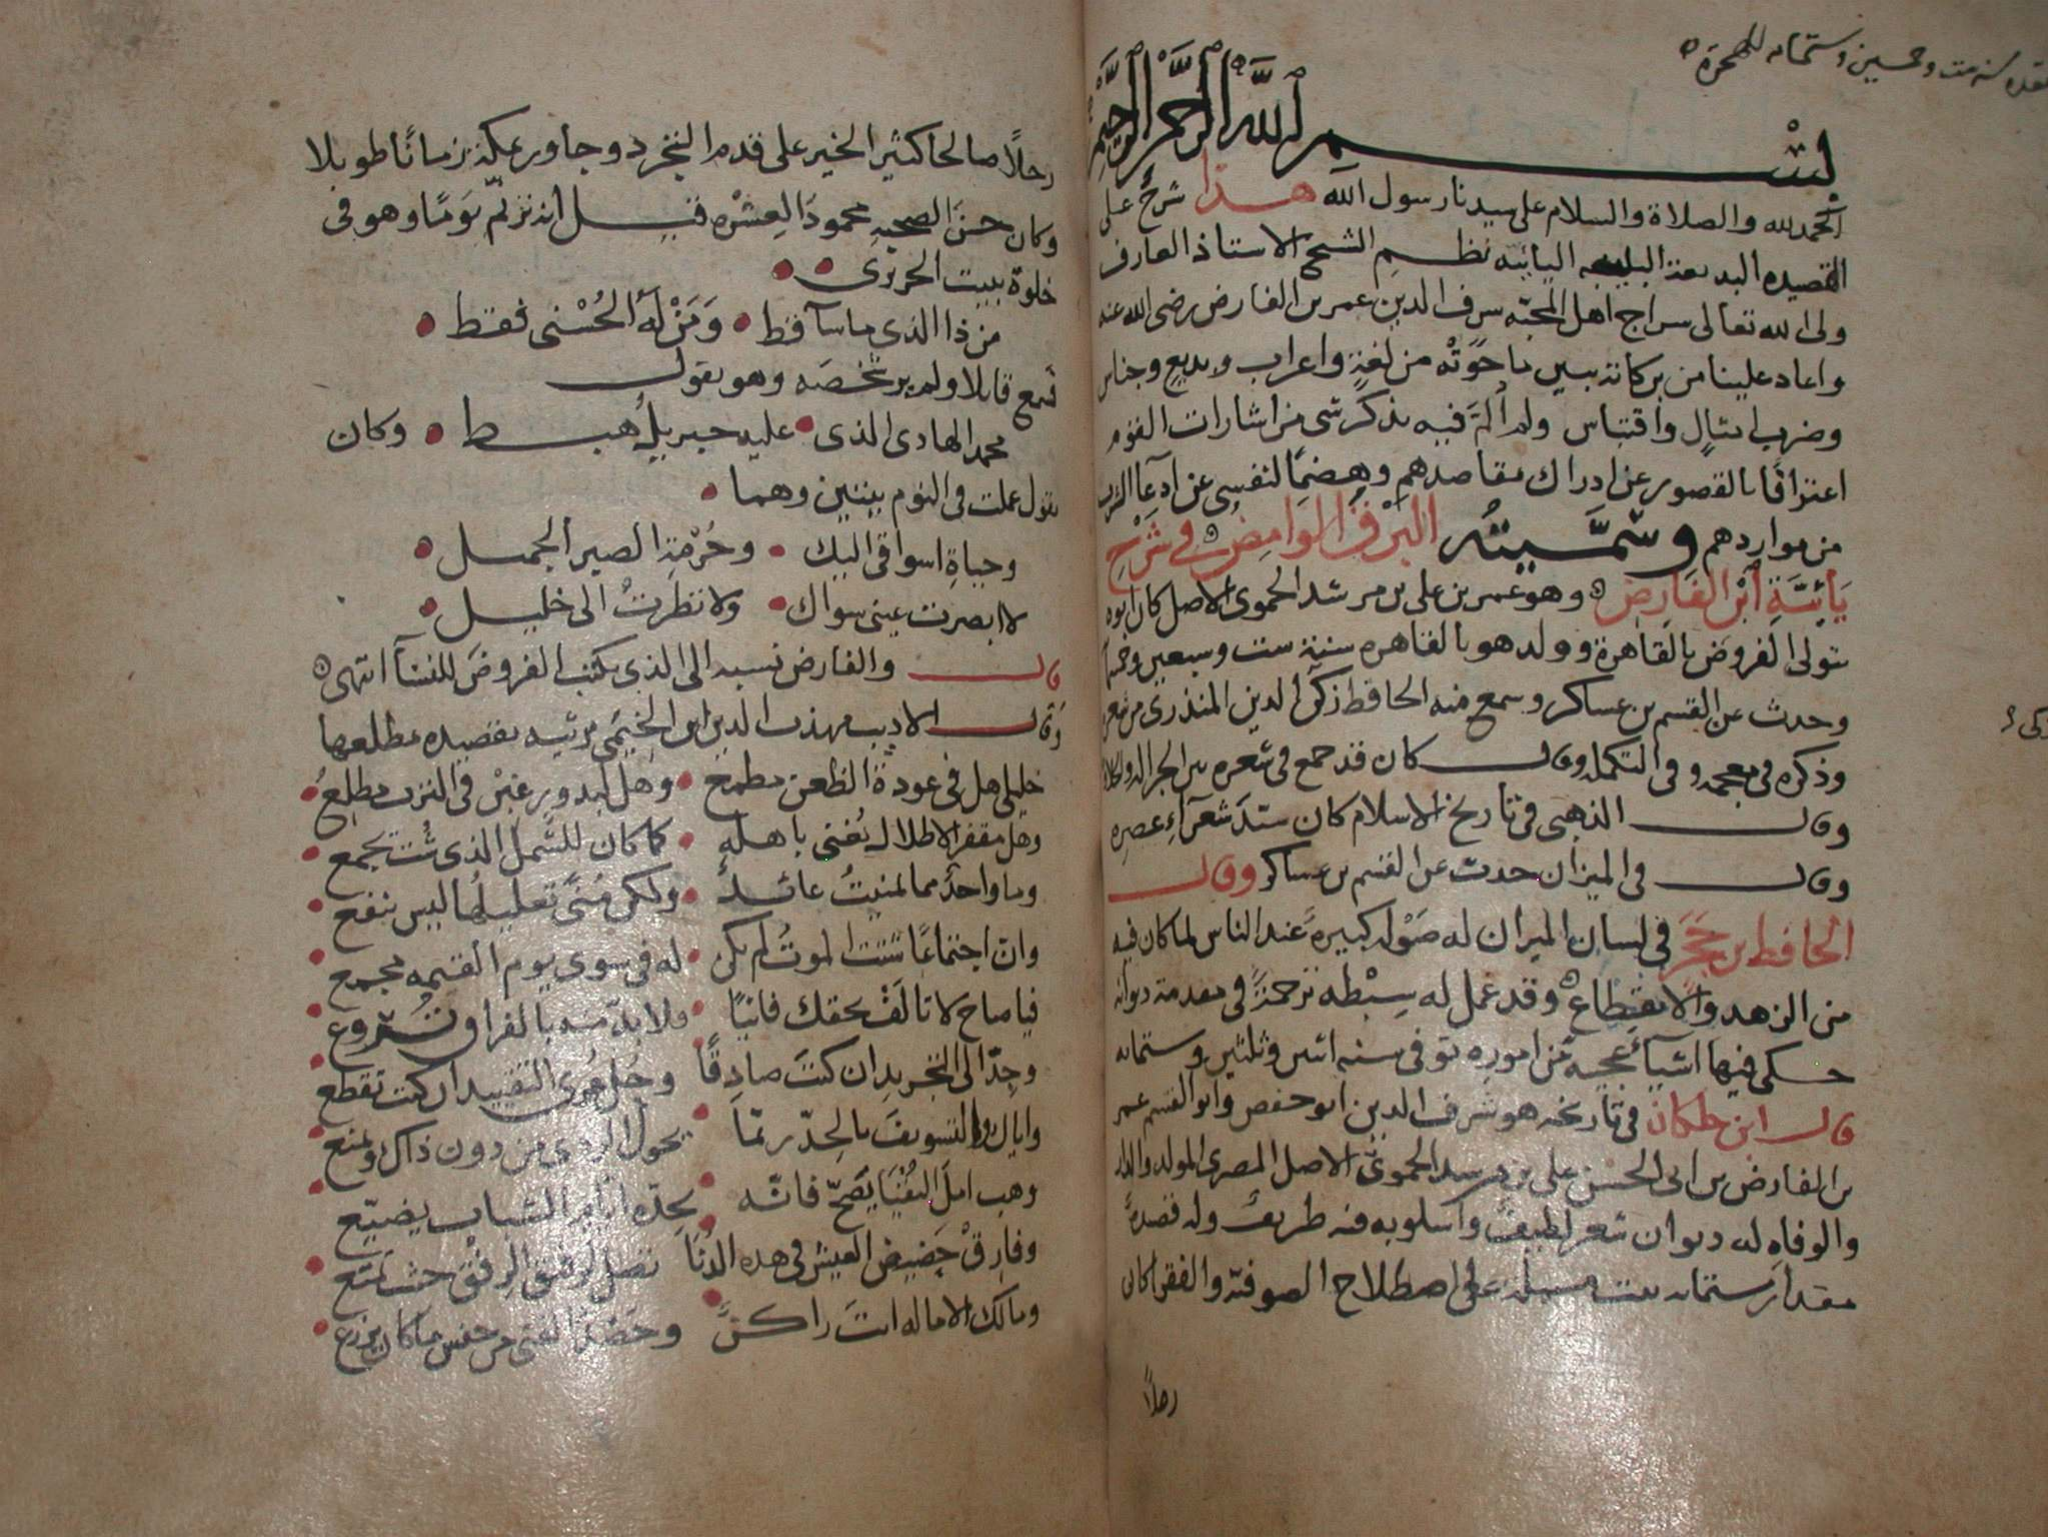 بسم الله الرحمن الرحيم
الحمد لله والصلاة والسلام على سيدنا رسول الله هذا شرح على
القصيده البديعة البليغه اليائيه نظم الشيخ الاستاذ العارف
ولى الله تعالى سراج اهل المحبه شرف الدين عمر بن الفارض رضى الله عنه
واعاد علينا من بركاته يبين ما حوته من لغة واعراب وبديع وجناس
وضرب امثال واقتباس ولم الم فيه بذكر شى من اشارات القوم
اعترافا بالقصور عن ادراك مقاصدهم وهضما لنفسى عن ادعآ الشرب
من مواردهم وسميته البرق الوامض في شرح
يائية ابن الفارض وهو عمر بن على بن مرشد الحموى الاصل كان ابوه
يتولى الفروض بالقاهرة وولد هو بالقاهره سنة ست وسبعين وخمسمائة
وحدث عن القسم بن عساكر وسمع منه الحافظ زكى الدين المنذرى من شعره
وذكره فى معجمه وفى التكمله وقال كان قد جمع فى شعره بين الجزاله والحلاوة
وقال الذهبى فى تاريخ الاسلام كان سيد شعرآء عصره
وقال فى الميزان حدث عن القسم بن عساكر وقال
الحافظ بن حجر فى لسان الميزان له صولة كبيرة عند الناس لما كان فيه
من الزهد والانقطاع وقد عمل له سبطه ترجمة فى مقدمة ديوانه
حكى فيها اشيآء عجيبه من اموره توفى سنه اثنين وثلثين وستمائه
قال ابن خلكان فى تاريخه هو شرف الدين ابو حفص وابو القسم عمر
بن الفارض بن ابى الحسن على بن مرشد الحموى الاصل المصرى المولد والدار
والوفاه له ديوان شعر لطيف واسلوبه فيه ظريف وله قصيدة
مقدار ستمائه بيت على اصطلاح الصوفيه والفقرا كان
رجلا
رجلا صالحا كثير الخير على قدم التجرد وجاور بمكة زمانا طويلا
وكان حسن الصحبه محمود العشره قيل انه ترنم يوما وهو فى
خلوة ببيت الحريرى
من ذا الذى ما سآ قط • ومن له الحسنى فقط
فسمع قايلا ولم ير شخصه وهو يقول
محمد الهادى الذى • عليه جبريل هبط • وكان
يقول عملت فى النوم بيتين وهما
وحياة اشواقى اليك • وحرمة الصبر الجميل
لا ابصرت عينى سواك • ولا نظرت الى خليل
قال والفارض نسبه الى الذى يكتب الفروض للنسآ انتهى
وقال الاديب مهذب الدين ابن الخيمى يرثيه بقصيده مطلعها
خليلى هل فى عودة الظعن مطمع • وهل لبدور غبن فى الترب مطلع
وهل مقفر الاطلال يغنى باهله • كما كان للشمل الذى شت يجمع
وما واحد مما تمنيت عائد • ولكن منى تعليلها ليس ينفع
وان اجتماعا شتت الموت لم يكن • له فى سوى يوم القيمه مجمع
فيا صاح لا تالف بحقك فانيا • فلا بد منه بالفراق تروع
وجد الى التجريد ان كنت صادقا وخل عرى التقييد ان كنت تقطع
واياك والتسويف بالجد ربما يحول الردى من دون ذاك ويمنع
وهب امل البقيا يصح فانه بجده ايام الشباب يضيع
وفارق حضيض العيش فى هذه الدنا
ومالك الا ماله انت راكن